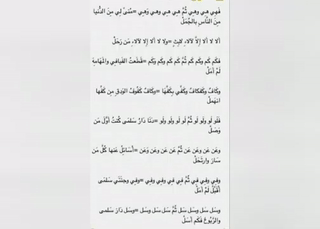 فَهِي هي وهي ثُمَّ هي هي وهي وَهِي «مُنَىً لِي مِنَ الدُّنيا
مِنَ النَّاسِ بِالجُمَل
ألا لا ألا إلَّا لآلاء لابِثٍ «ولا لا ألا إلا لآلاء مَن رَحَل
فكَم كَم وكَم كَم ثُمَّ كَم كَم وكَم وَكَم «قَطَعتُ الفَيافِي والمَهامِهَ
لَم أمَل
وكافٌ وكَفكافٌ وكَفِّي بِكَفِّها «وكافٌ كَفُوفُ الوَدقِ مِن كَفِّها
انهَمَل
فَلَو لَو ولَو لَو ثُمَّ لَو لَو ولَو ولَو «دَنا دارُ سَلمى كُنتُ أوَّلَ مَن
وَصَل
وعَن عَن وعَن عَن ثُمَّ عَن عَن وعَن وَعَن «أُسائِلُ عَنها كُلَّ مَن
سارَ وارتَحَل
وفِي وفِي فِي ثُمَّ فِي فِي وفِي وفِي «وفِي وجنَتَي سَلمى
أُقَبِّلُ لَم أمَل
وسَل سَل وسَل سَل ثُمَّ سَل سَل وسَل «وسَل دارَ سَلمى
والرَّبُوعَ فكَم أسَل